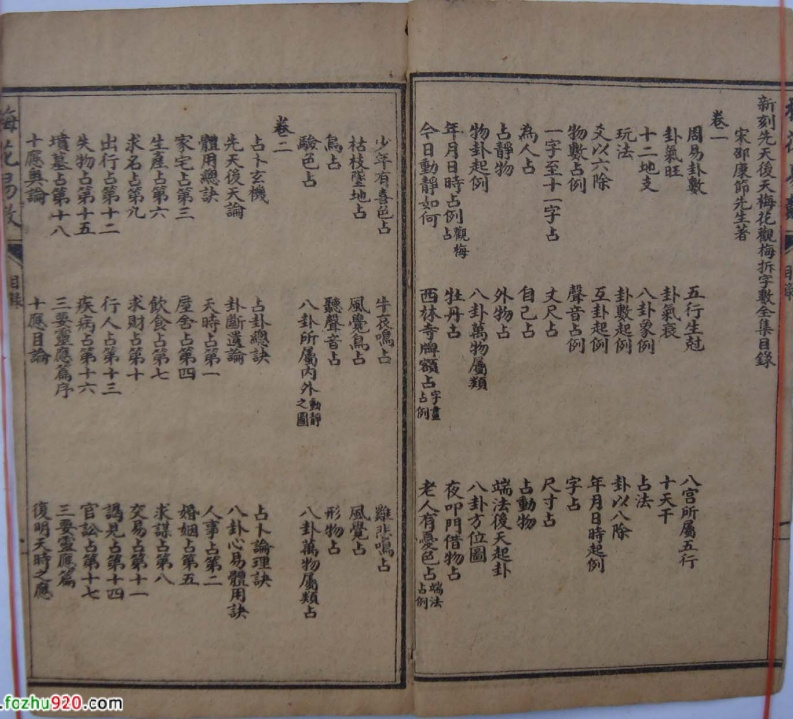 新刻先天後天梅花觀梅拆字數全集目錄
宋邵康節先生著
卷一
周易卦數 五行生尅 八宮所屬五行
卦氣旺 卦氣衰 十天干
十二地支 八卦象例 占法
玩法 卦數起例 卦以八除
爻以六除 互卦起例 年月日時起例
物數占例 聲音占例 字占
一字至十一字占 丈尺占 尺寸占
為人占 自己占 占動物
占靜物 外物占 端法後天起卦
物卦起例 八卦萬物屬類 八卦方位圖
年月日時占例觀梅占 牡丹占 夜叩門借物占
今日動靜如何 西林寺牌額占字畫占例 老人有憂色占端法占例
少年有喜色占 牛哀鳴占 雞悲鳴占
枯枝墜地占 風覺鳥占 風覺占
鳥占 聽聲音占 形物占
驗色占 八卦所屬內外動靜之圖 八卦萬物屬類占
卷二
占卜玄機 占卦總訣 占卜論理訣
先天後天論 卦斷遺論 八卦心易體用訣
體用總訣 天時占第一 人事占第二
家宅占第三 屋舍占第四 婚姻占第五
生產占第六 飲食占第七 求謀占第八
求名占第九 求財占第十 交易占第十一
出行占第十二 行人占第十三 謁見占第十四
失物占第十五 疾病占第十六 官訟占第十七
墳墓占第十八 三要靈應篇序 三要靈應篇
十應奧論 十應目論 復明天時之應
梅花易數
目錄
.fozhu920.com